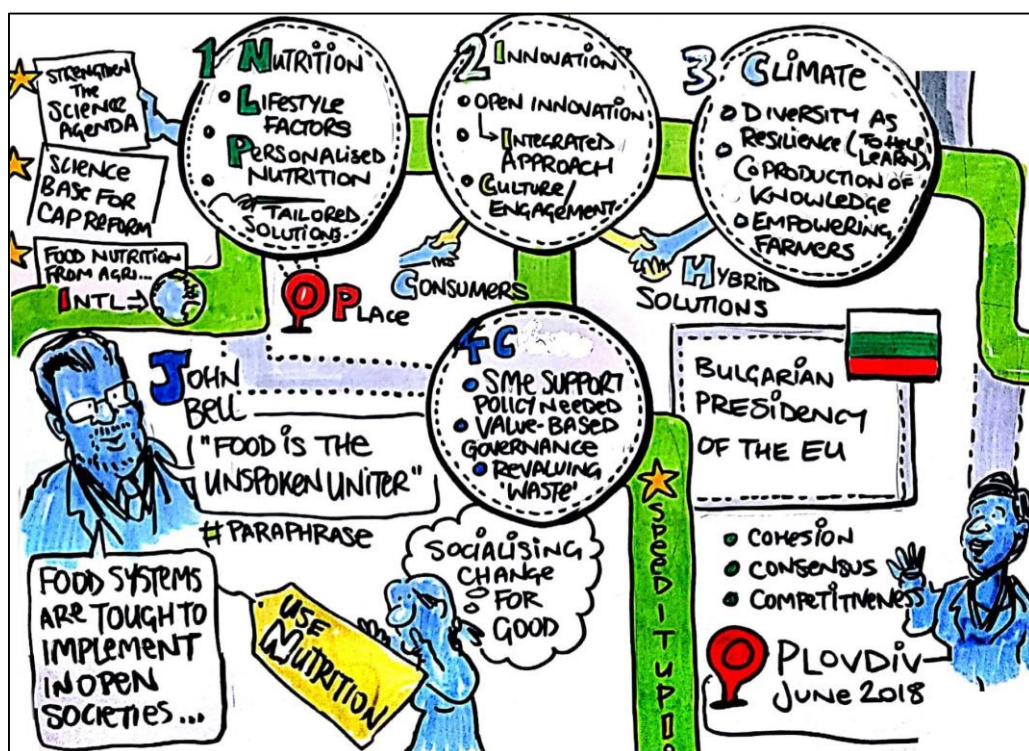 STRENGTHEN
THE
SCIENCE
AGENDA
SCIENCE
BASE FOR
CAP REFORM
FOOD NUTRITION
FROM AGRI...
INTL →
1 NUTRITION
LIFESTYLE
FACTORS
PERSONALISED
NUTRITION
TAILORED
SOLUTIONS
2 INNOVATION
OPEN INNOVATION
INTEGRATED
APPROACH
CULTURE/
ENGAGEMENT
3 CLIMATE
DIVERSITY AS
RESILIENCE (TO HELP
LEARN)
COPRODUCTION OF
KNOWLEDGE
EMPOWERING
FARMERS
PLACE
CONSUMERS
HYBRID
SOLUTIONS
4C
SME SUPPORT
POLICY NEEDED
VALUE-BASED
GOVERNANCE
REVALUING
'WASTE'
BULGARIAN
PRESIDENCY
OF THE EU
JOHN
BELL
"FOOD IS THE
UNSPOKEN UNITER"
#PARAPHRASE
FOOD SYSTEMS
ARE TOUGH TO
IMPLEMENT
IN OPEN
SOCIETIES...
USE
NUTRITION
SOCIALISING
CHANGE
FOR
GOOD
SPEED IT UP!
COHESION
CONSENSUS
COMPETITIVENESS
PLOVDIV
JUNE 2018